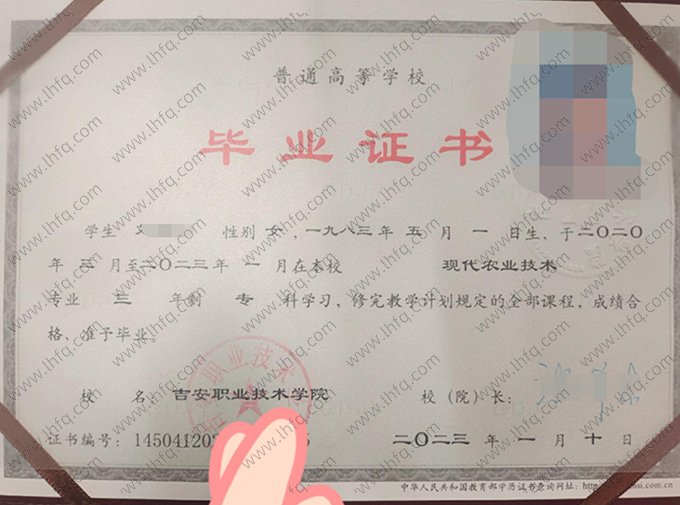 普通高等学校
毕业证书
学生 性别 女,一九八三年 五 月 一 日生,于二〇二〇
年 三 月至二〇二三年 一 月在本校 现代农业技术
专业 三 年制 专 科学习,修完教学计划规定的全部课程,成绩合
格,准予毕业。
校 名:吉安职业技术学院 校(院)长:
证书编号:145041202
二〇二三 年 一 月 十 日
中华人民共和国教育部学历证书查询网址:
www.lhfq.com